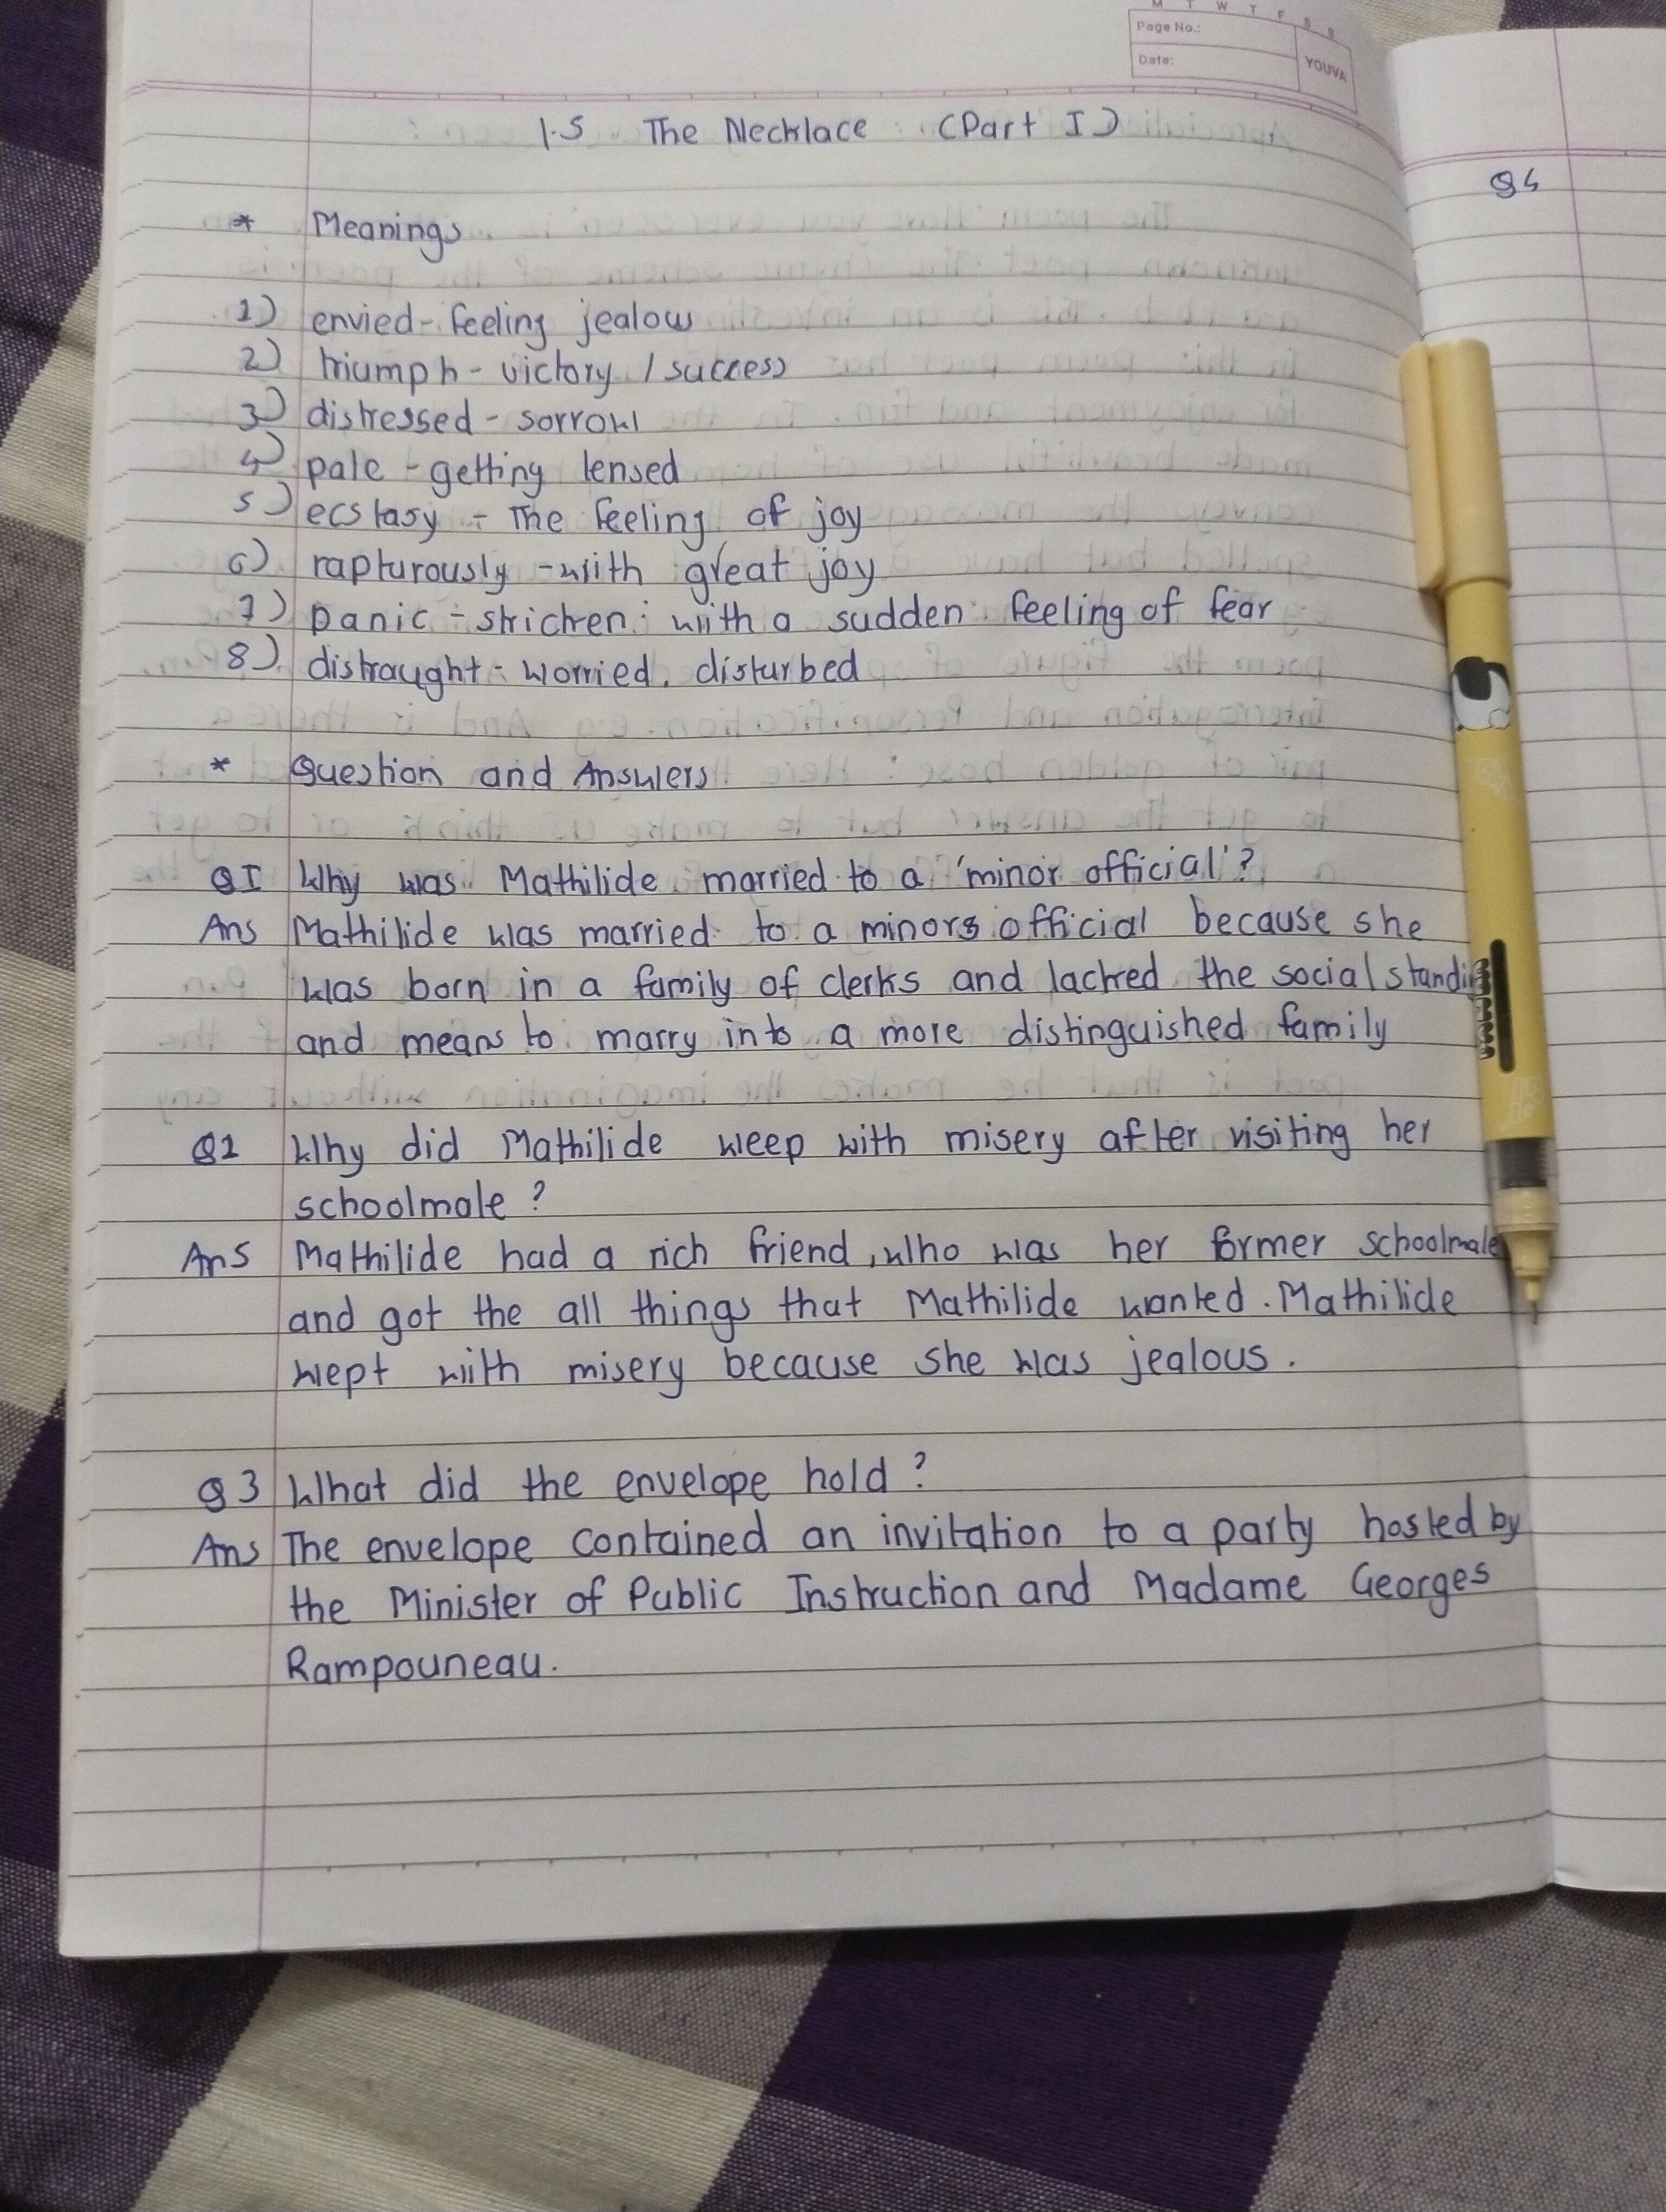 M T W T F S S
Page No.:
Date:
YOUVA
1.5 The Necklace (Part I)
* Meanings
1) envied - feeling jealous
2) triumph - victory / success
3) distressed - sorrow
4) pale - getting tensed
5) ecstasy - The feeling of joy
6) rapturously - with great joy
7) panic - stricken : with a sudden feeling of fear
8) distraught - worried, disturbed
* Question and Answers
Q1 Why was Mathilide married to a 'minor official'?
Ans Mathilide was married to a minors official because she
was born in a family of clerks and lacked the social standi
and means to marry into a more distinguished family
Q2 Why did Mathilide weep with misery after visiting her
schoolmate ?
Ans Mathilide had a rich friend, who was her former schoolmate
and got the all things that Mathilide wanted. Mathilide
wept with misery because she was jealous.
Q3 What did the envelope hold ?
Ans The envelope contained an invitation to a party hosted by
the Minister of Public Instruction and Madame Georges
Rampouneau.
Q4